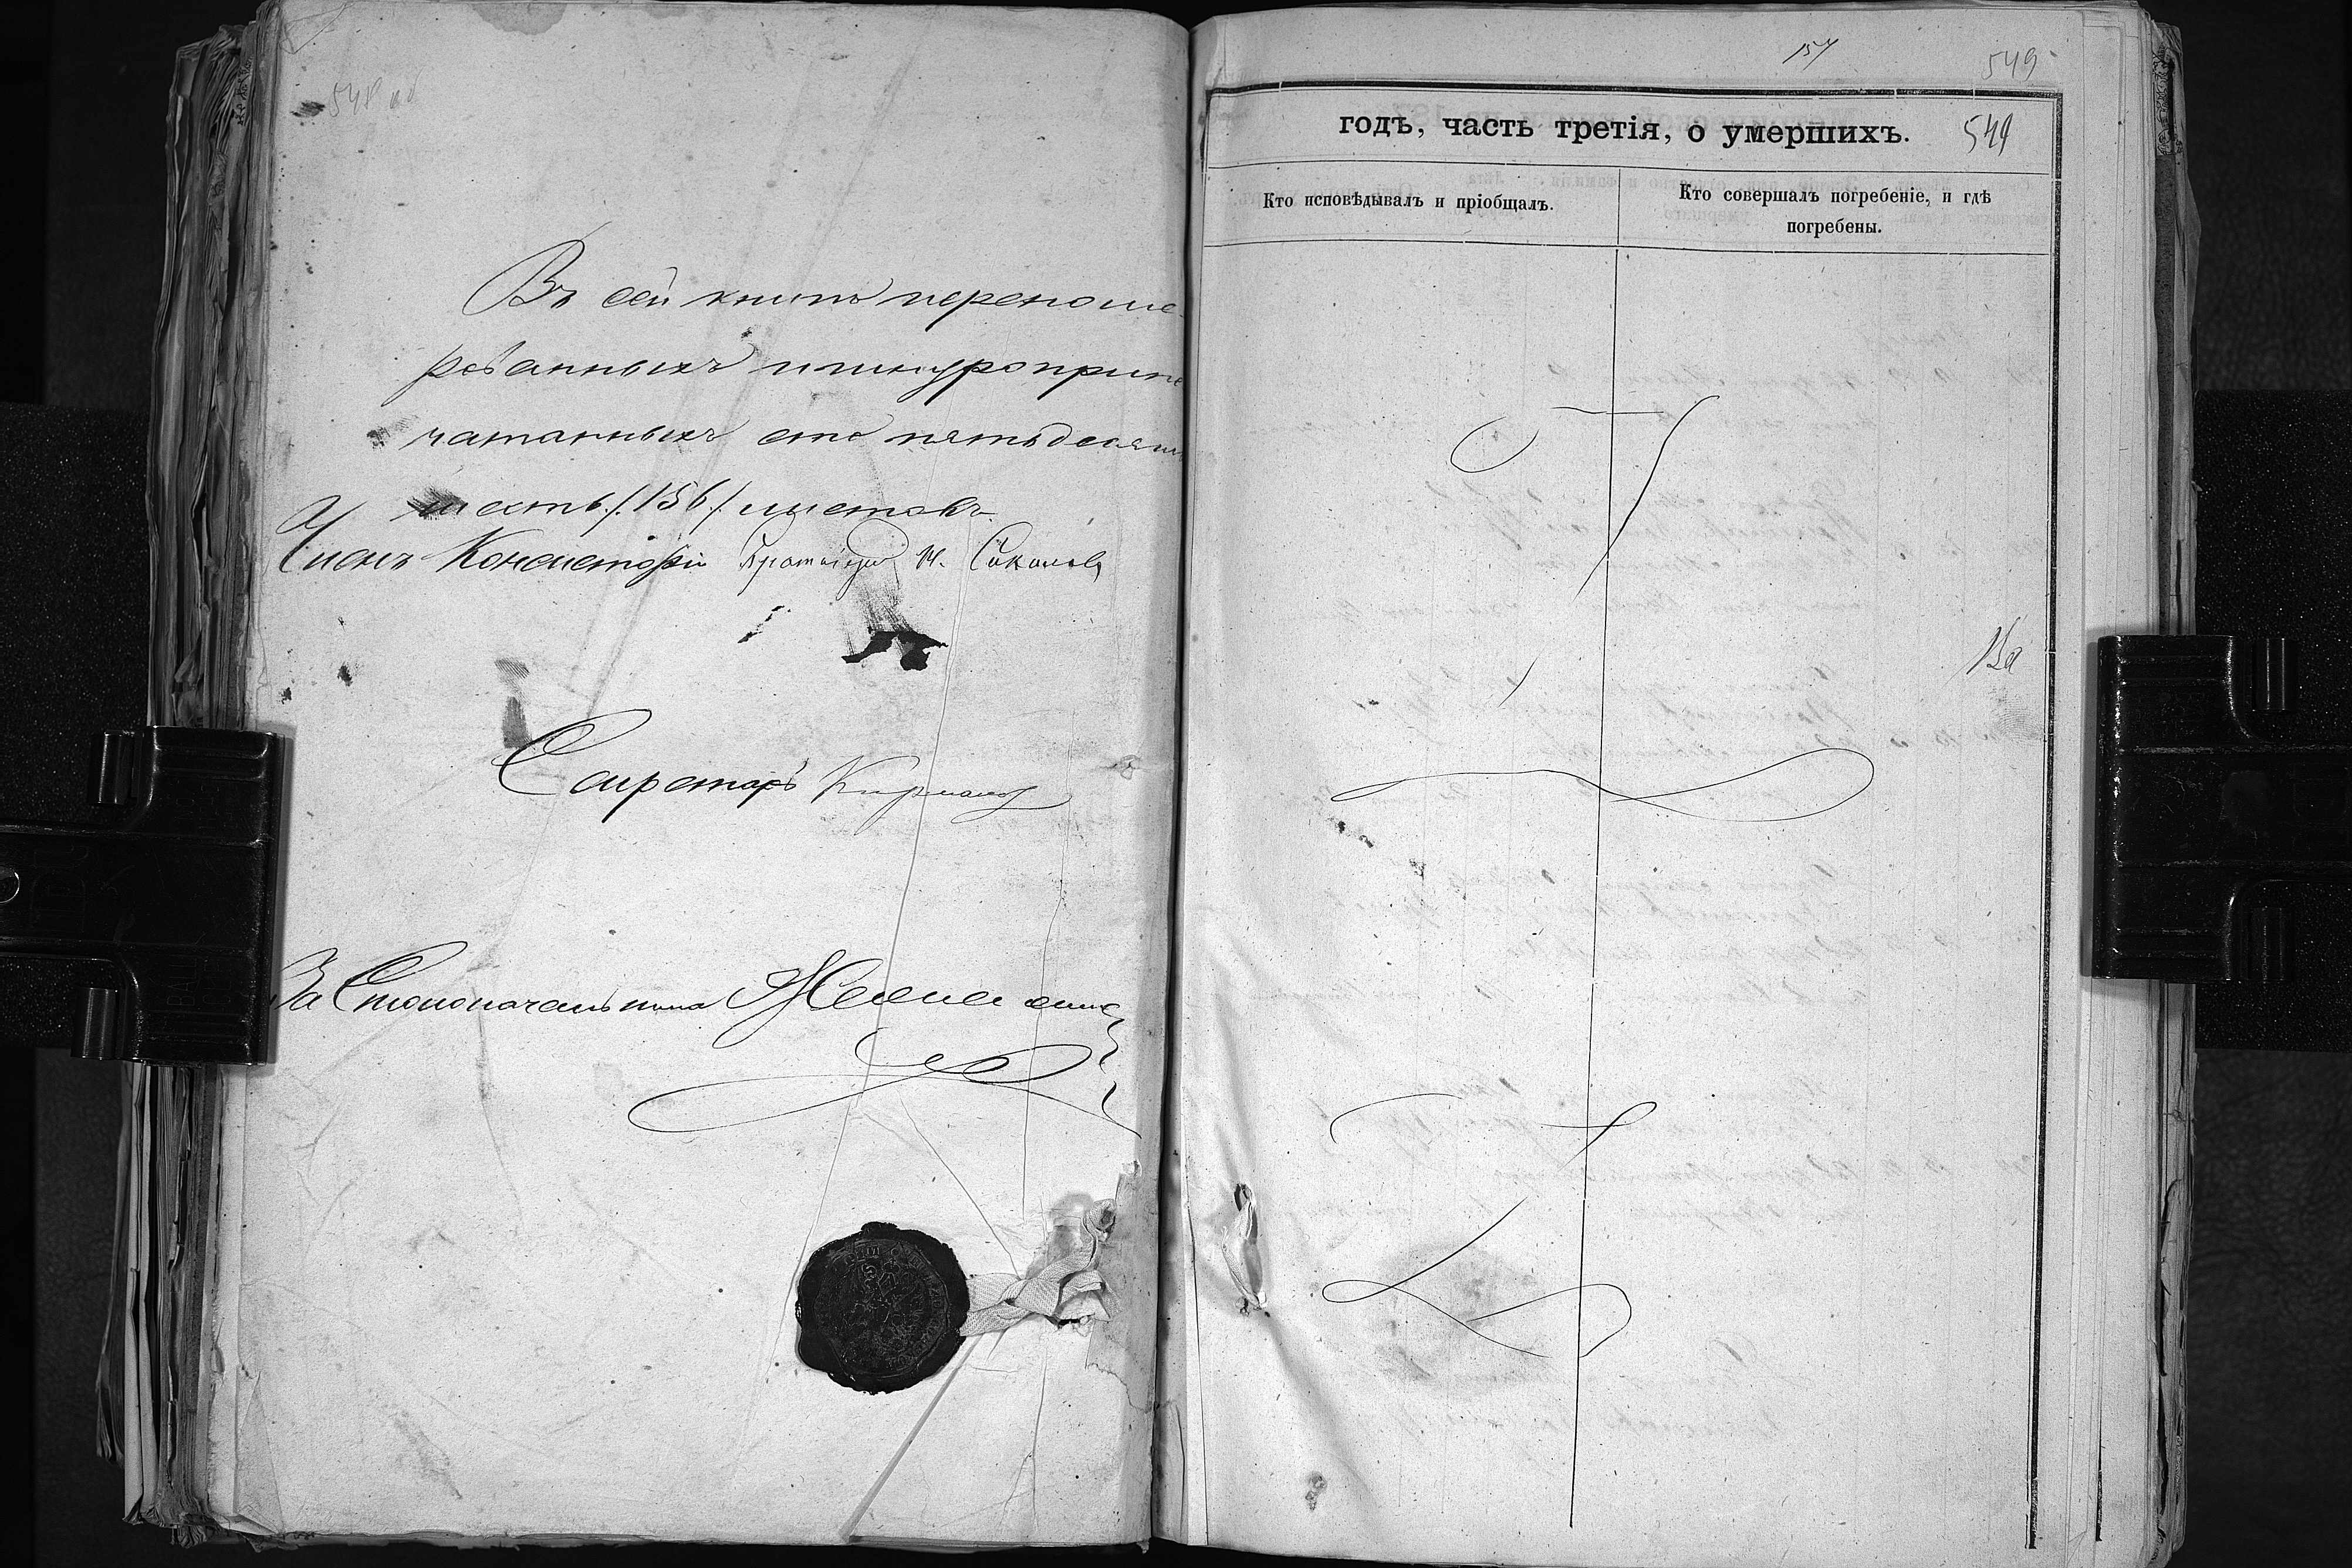 548 об
Въ сей книгѣ перенуме-
рованныхъ и шнуроприпе
чатанныхъ сто пятьдесятъ
шесть /.156/. листовъ.
Членъ Консисторіи Протоіерей И. Соколовъ
Секретарь
За Столоначальника
157
549
годъ, часть третія, о умершихъ. 549
Кто исповѣдывалъ и пріобщалъ.
Кто совершалъ погребеніе, и гдѣ
погребены.